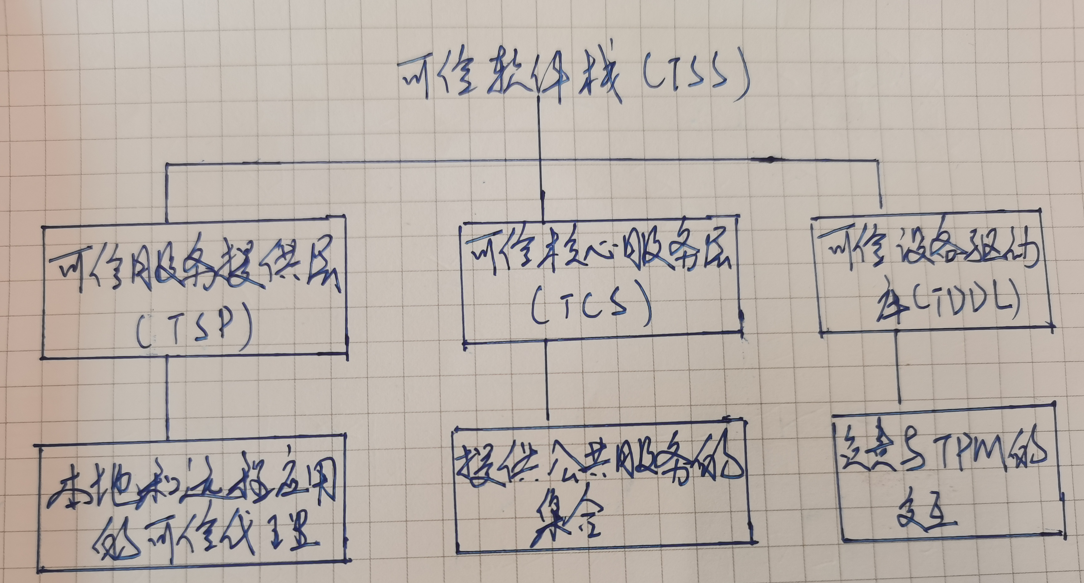 可信软件栈(TSS)
可信服务提供层
(TSP)
可信核心服务层
(TCS)
可信设备驱动
库(TDDL)
本地和远程应用
的可信代理
提供公共服务的
集合
负责与TPM的
交互